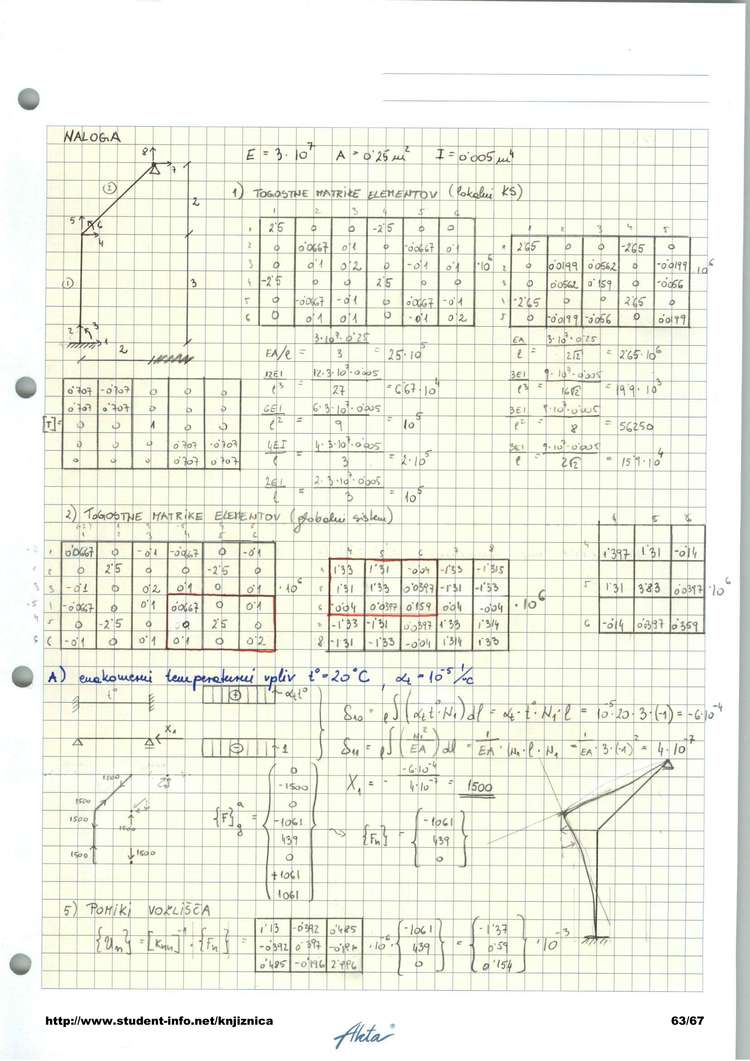 NALOGA
E = 3·10⁷ A = 0'25 m² I = 0'005 m⁴
1) TOGOSTNE MATRIKE ELEMENTOV (lokalni KS)
1 2 3 4 5 6
1 2'5 0 0 -2'5 0 0
2 0 0'0667 0'1 0 -0'0667 0'1
3 0 0'1 0'2 0 -0'1 0'1 ·10⁶
4 -2'5 0 0 2'5 0 0
5 0 -0'0667 -0'1 0 0'0667 -0'1
6 0 0'1 0'1 0 -0'1 0'2
1 2 3 4 5
1 2'65 0 0 -2'65 0
2 0 0'0199 0'0562 0 -0'0199 ·10⁶
3 0 0'0562 0'159 0 -0'056
4 -2'65 0 0 2'65 0
5 0 -0'0199 -0'056 0 0'0199
EA/l = 3·10⁷·0'25 / 3 = 25·10⁵
12EI / l³ = 12·3·10⁷·0'005 / 27 = 6'67·10⁴
6EI / l² = 6·3·10⁷·0'005 / 9 = 10⁵
4EI / l = 4·3·10⁷·0'005 / 3 = 2·10⁵
2EI / l = 2·3·10⁷·0'005 / 3 = 10⁵
EA / l = 3·10⁷·0'25 / 2√2 = 2'65·10⁶
3EI / l³ = 9·10⁷·0'005 / 16√2 = 19'9·10³
3EI / l² = 9·10⁷·0'005 / 8 = 56250
3EI / l = 9·10⁷·0'005 / 2√2 = 15'9·10⁴
[T] =
0'707 -0'707 0 0 0
0'707 0'707 0 0 0
0 0 1 0 0
0 0 0 0'707 -0'707
0 0 0 0'707 0'707
2) TOGOSTNE MATRIKE ELEMENTOV (globalni sistem)
0'0667 0 -0'1 -0'0667 0 -0'1
0 2'5 0 0 -2'5 0
-0'1 0 0'2 0'1 0 0'1 ·10⁶
-0'0667 0 0'1 0'0667 0 0'1
0 -2'5 0 0 2'5 0
-0'1 0 0'1 0'1 0 0'2
4 5 6 7 8
4 1'33 1'31 -0'04 -1'33 -1'315
5 1'31 1'33 0'0397 -1'31 -1'33
6 -0'04 0'0397 0'159 0'04 -0'04 ·10⁶
7 -1'33 -1'31 0'0397 1'33 1'314
8 -1'31 -1'33 -0'04 1'314 1'33
4 5 6
4 1'397 1'31 -0'14
5 1'31 3'83 0'0397 ·10⁶
6 -0'14 0'0397 0'359
A) enakomerni temperaturni vpliv t° = 20°C, αt = 10⁻⁵ 1/°C
t° ⊕ αt t°
δ10 = ∫(αt·t°·N1)dl = αt·t°·N1·l = 10⁻⁵·20·3·(-1) = -6·10⁻⁴
X1 ⊖ 1
δ11 = ∫(N1²/EA)dl = 1/EA·N1·l·N1 = 1/EA·3·(-1)² = 4·10⁻⁷
X1 = - -6·10⁻⁴ / 4·10⁻⁷ = 1500
1500
1500
1500
1500
1500
{F}ᵃg = { 0 -1500 0 -1061 439 0 +1061 1061 } ⇝ {Fn} = { -1061 439 0 }
5) POMIKI VOZLIŠČA
{Un} = [Knn]⁻¹·{Fn} =
1'13 -0'392 0'485
-0'392 0'397 -0'197 ·10⁻⁶ { -1061 439 0 } = { -1'37 0'59 0'154 } ·10⁻³
0'485 -0'196 2'996
http://www.student-info.net/knjiznica 63/67
Akta